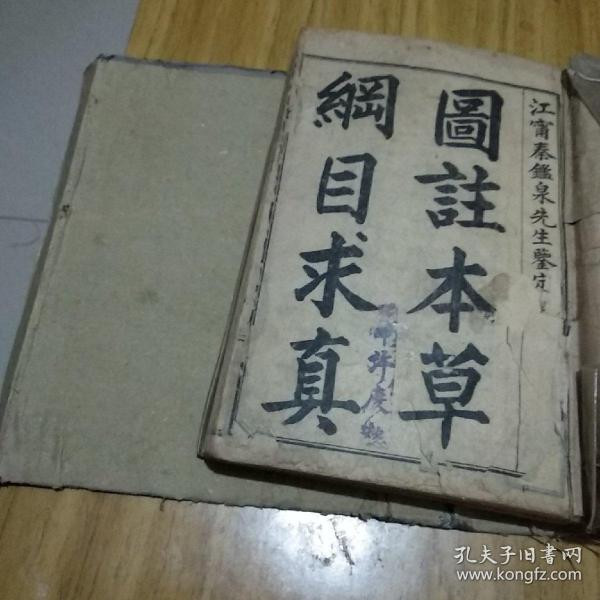 江寗秦鑑泉先生鑒定
圖註本草
綱目求真
孔夫子旧书网
www.kongfz.com